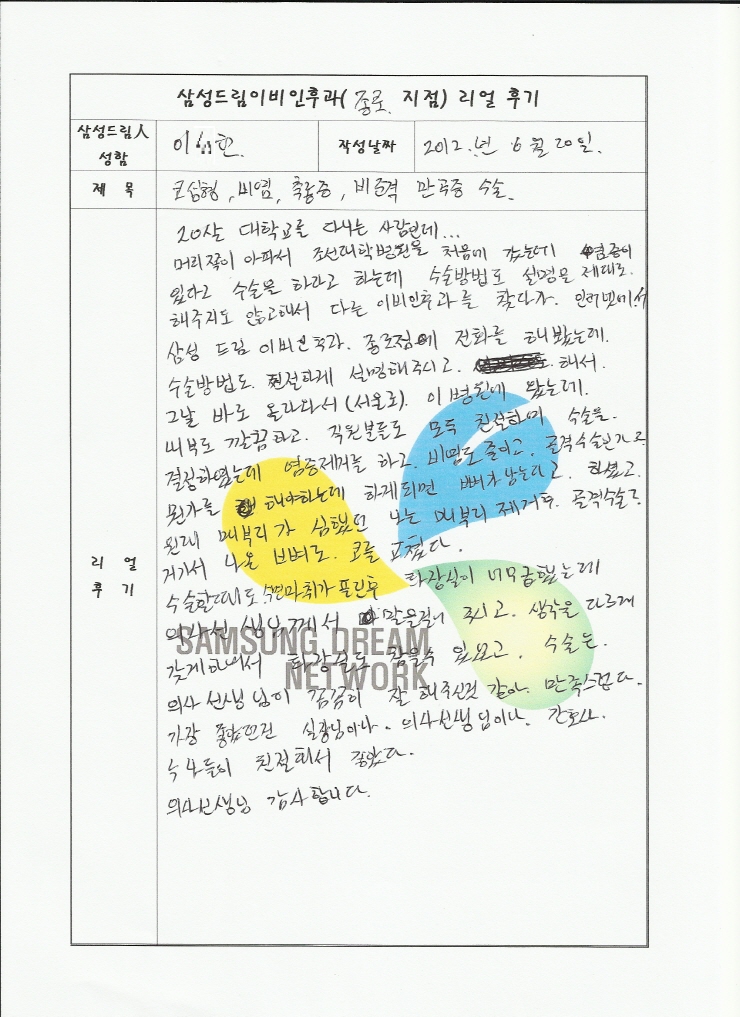 삼성드림이비인후과( 종로 지점) 리얼 후기
삼성드림人
성함
이 현
작성날짜
2012.년 6월 20일.
제 목
코성형, 비염, 축농증, 비중격 만곡증 수술.
20살 대학교를 다니는 사람인데...
머리쪽이 아파서 조선대학병원을 처음에 갔는데 염증이
있다고 수술을 하라고 하는데 수술방법도 설명을 제대로.
해주지도 않고해서 다른 이비인후과를 찾다가. 인터넷에서
삼성 드림 이비인후과. 종로점에 전화를 해봤는데.
수술방법도. 친절하게 설명해주시고. 해서.
그날 바로 올라와서 (서울로). 이 병원에 왔는데.
내부도 깔끔하고. 직원분들도 모두 친절하며 수술을.
결정하였는데 염증제거를 하고. 비염도 줄이고. 골격수술인가
뭔가를 해야하는데 하게되면 뼈가 남는다고. 하셨고.
원래 매부리가 심했던 나는 매부리 제거후. 골격수술
거기서 나온 뼈로. 코를 고쳤다.
수술할때도 수면마취가 풀린후 화장실이 너무급했는데
의사선생님께서 말을걸어 주시고. 생각을 다르게
갖게하여서 화장실도 참을수 있었고. 수술은.
의사선생님이 꼼꼼히 잘 해주신것 같아. 만족스럽다.
가장 좋았던건 실장님이나. 의사선생님이나. 간호사.
누나들이 친절해서 좋았다.
의사선생님 감사합니다.
리 얼
후 기
SAMSUNG DREAM
NETWORK